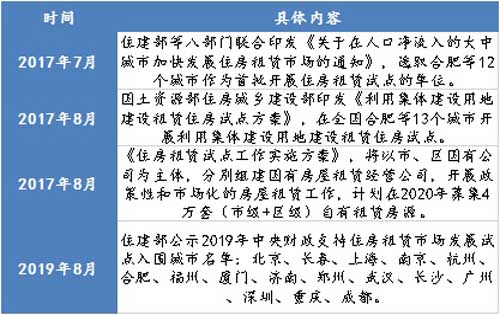 时间 具体内容
住建部等八部门联合印发《关于在人口净流入的大中
2017年7月 城市加快发展住房租赁市场的通知》，选取合肥等12
个城市作为首批开展住房租赁试点的单位。
国土资源部住房城乡建设部印发《利用集体建设用地
2017年8月 建设租赁住房试点方案》，在全国合肥等13个城市开
展利用集体建设用地建设租赁住房试点。
《住房租赁试点工作实施方案》，将以市、区国有公
2017年8月 司为主体，分别组建国有房屋租赁经营公司，开展政
策性和市场化的房屋租赁工作，计划在2020年筹集4
万套（市级+区级）自有租赁房源。
住建部公示2019年中央财政支持住房租赁市场发展试
2019年8月 点入围城市名单：北京、长春、上海、南京、杭州、
合肥、福州、厦门、济南、郑州、武汉、长沙、广州
、深圳、重庆、成都。